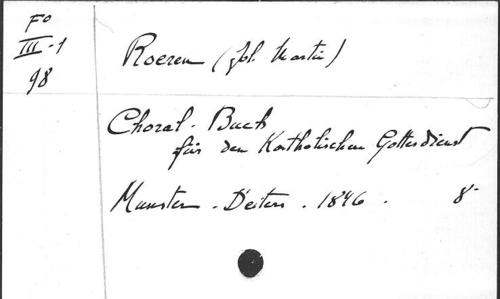 Fo
III-1
98
Roeren (Joh. Martin)
Choral-Buch
für den Katholischen Gottesdienst
Munster. Deiters. 1846. 8-